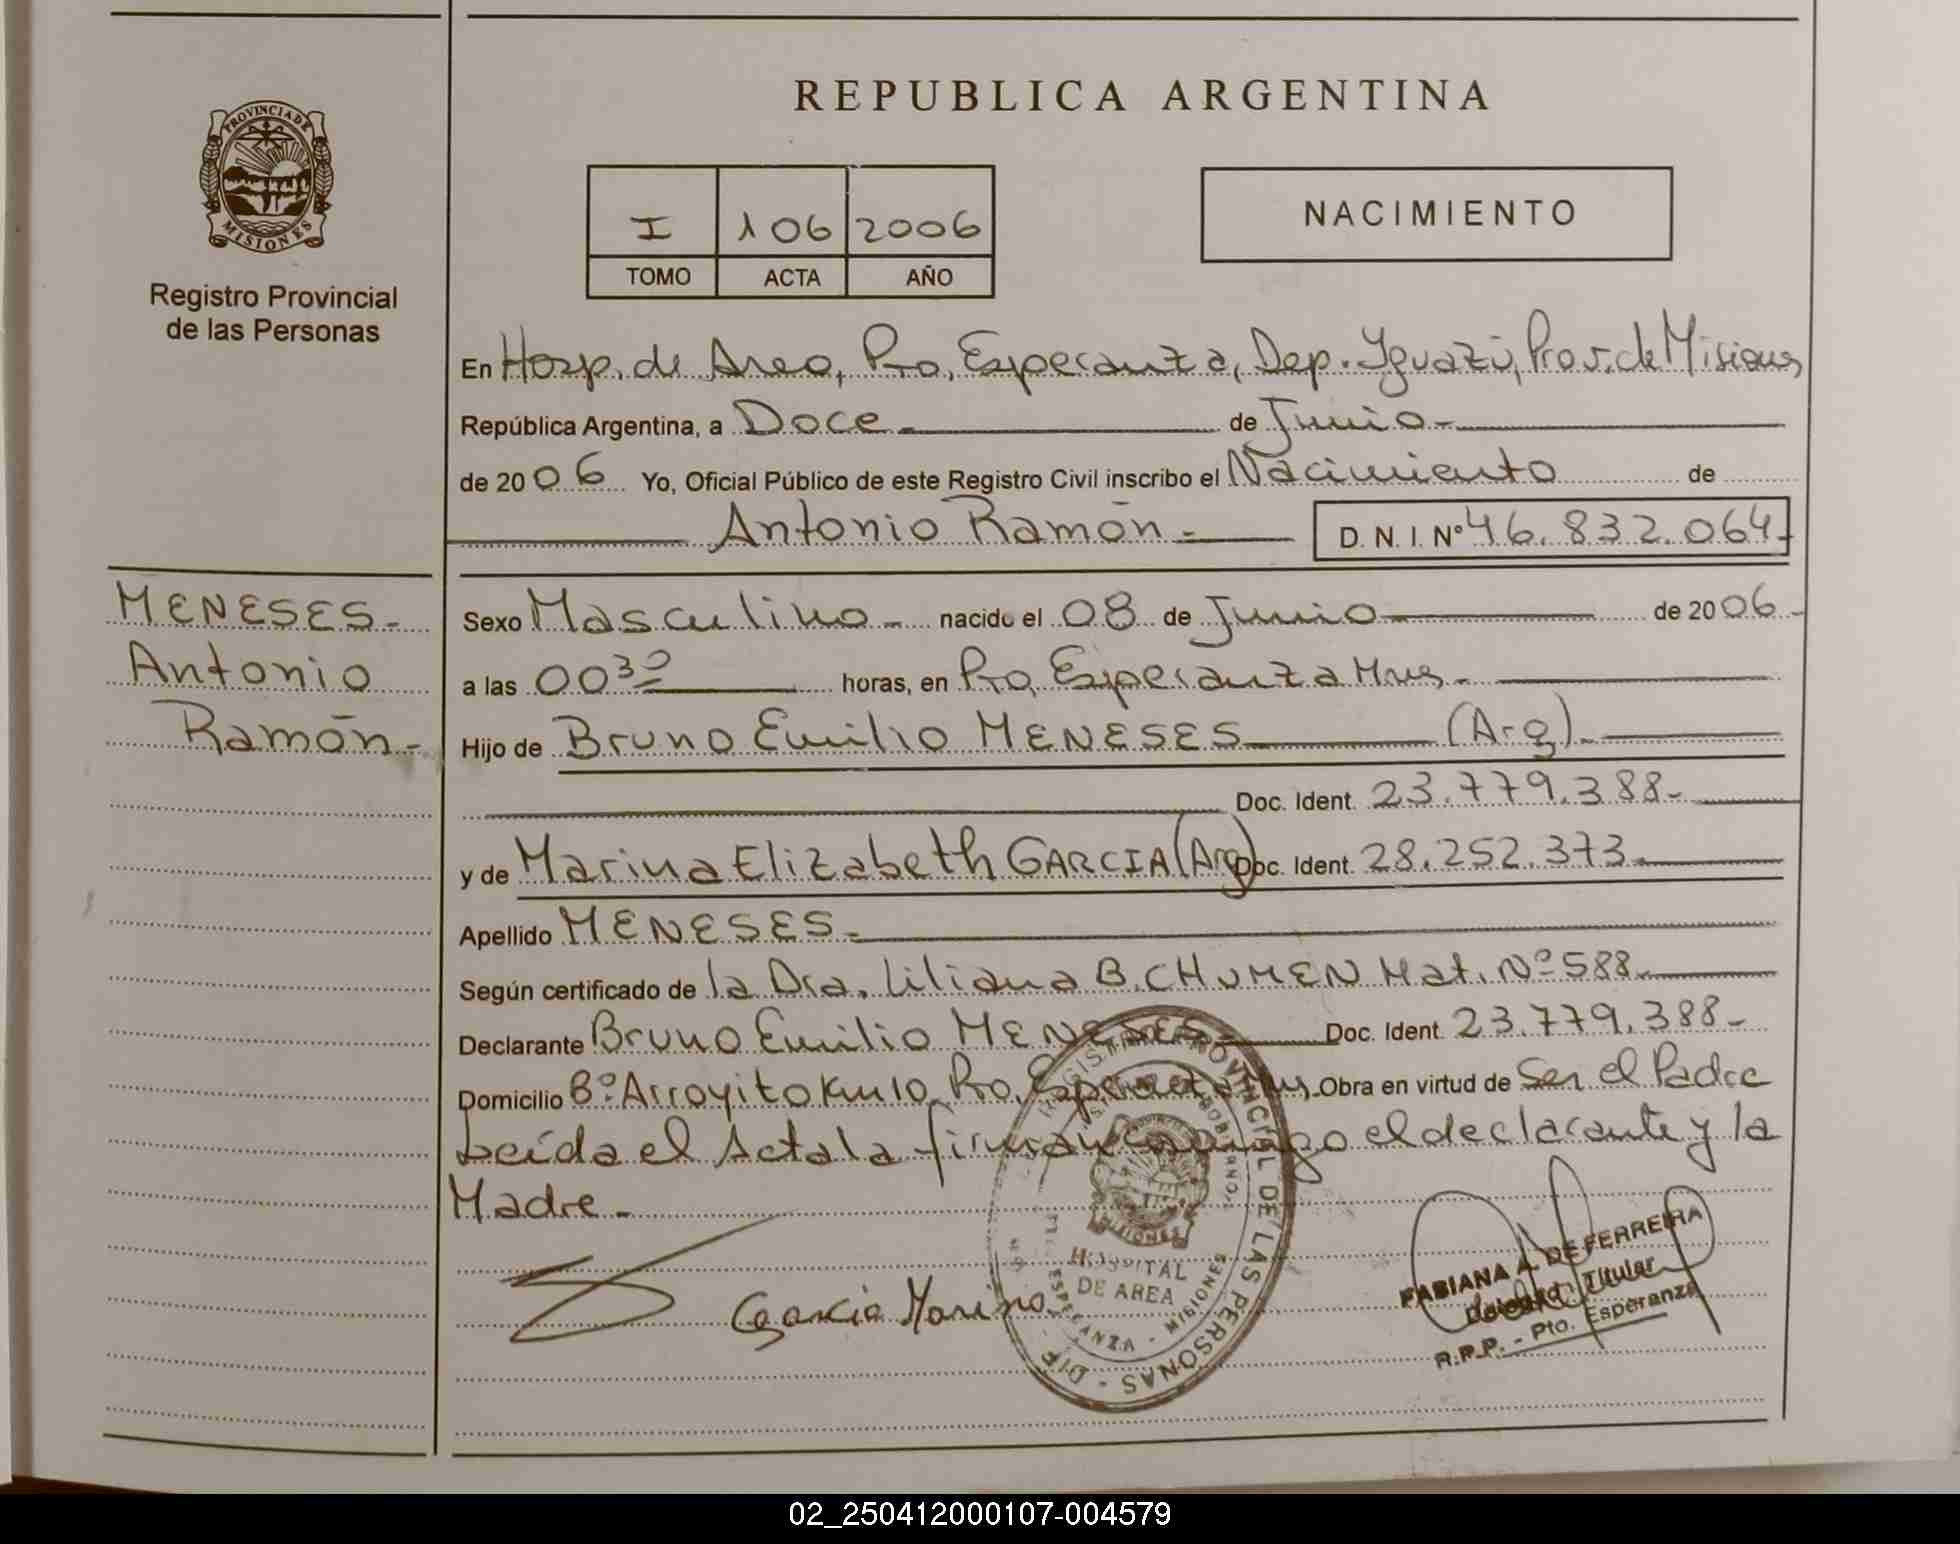 REPUBLICA ARGENTINA
PROVINCIA DE
MISIONES
Registro Provincial
de las Personas
I 106 2006
TOMO ACTA AÑO
NACIMIENTO
En Hosp. de Area, Pto, Esperanza, Dep. Iguazú, Prov. de Misiones
República Argentina, a Doce.- de Junio.-
de 2006 Yo, Oficial Público de este Registro Civil inscribo el Nacimiento de
Antonio Ramón.- D. N. I. Nº 46.832.064.-
MENESES.-
Antonio
Ramón.-
Sexo Masculino.- nacido el 08 de Junio de 2006.-
a las 00 30 horas, en Pto, Esperanza Mnes.-
Hijo de Bruno Emilio MENESES (Arg).-
Doc. Ident. 23.779.388.-
y de Marina Elizabeth GARCIA (Arg) Doc. Ident. 28.252.373.-
Apellido MENESES.-
Según certificado de la Dra. Liliana B. CHUMEN Mat. Nº 588.-
Declarante Bruno Emilio MENESES.- Doc. Ident. 23.779.388.-
Domicilio Bº Arroyito Km 10, Pto, Esperanza Mnes, Obra en virtud de ser el Padre
Leída el Acta la firman conmigo el declarante y la
Madre.-
Garcia Marina
REGISTRO PROVINCIAL DE LAS PERSONAS - DIF
MISIONES
HOSPITAL
DE AREA
ESPERANZA - MISIONES
FABIANA A. DE FERREIRA
Delegada Titular
R.P.P. - Pto. Esperanza
02_250412000107-004579